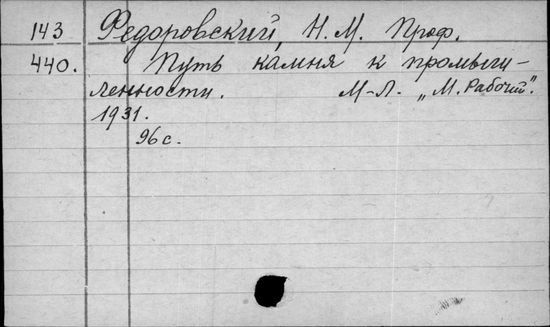 143 Федоровский, Н. М. Проф.
440. Путь камня к промыш-
ленности. М-Л. „М. Рабочий".
1931.
96 с.